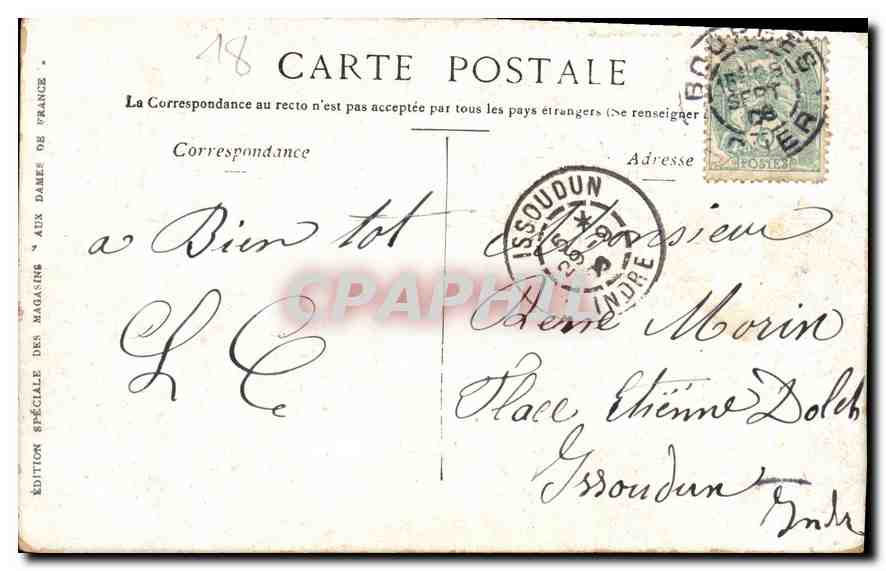 18
CARTE POSTALE
La Correspondance au recto n'est pas acceptée par tous les pays étrangers (Se renseigner
Correspondance
Adresse
BOURGES
SEPT
CHER
POSTES
ISSOUDUN
INDRE
a Bien tot
L C
Monsieur
Pierre Morin
Place Etienne Dolet
Issoudun
Indre
CPAPHIL
ÉDITION SPÉCIALE DES MAGASINS "AUX DAMES DE FRANCE"